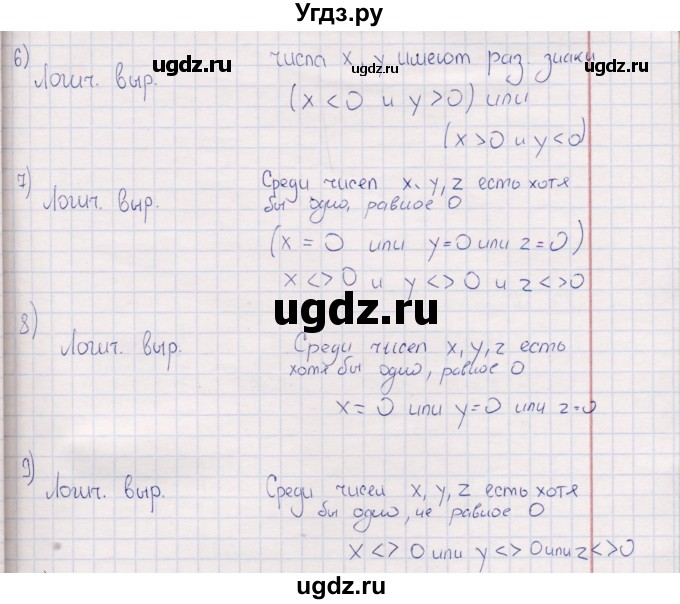 Угдз.ру
6) Логич. выр. числа x, y имеют раз. знаки
(x < 0 и y > 0) или
(x > 0 и y < 0)
7) Логич. выр. Среди чисел x, y, z есть хотя
бы одно, равное 0
(x = 0 или y = 0 или z = 0)
x <> 0 и y <> 0 и z <> 0
8) Логич. выр. Среди чисел x, y, z есть
хотя бы одно, равное 0
x = 0 или y = 0 или z = 0
9) Логич. выр. Среди чисел x, y, z есть хотя
бы одно, не равное 0
x <> 0 или y <> 0 или z <> 0
ugdz.ru
ugdz.ru
ugdz.ru
ugdz.ru
ugdz.ru
ugdz.ru
ugdz.ru